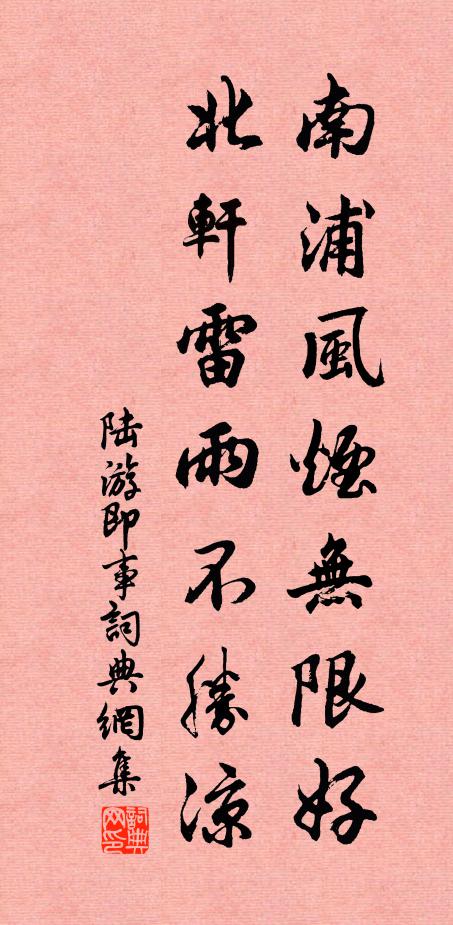 南浦風煙無限好
北軒雷雨不勝涼
陆游即事詞典網集
詞典网印